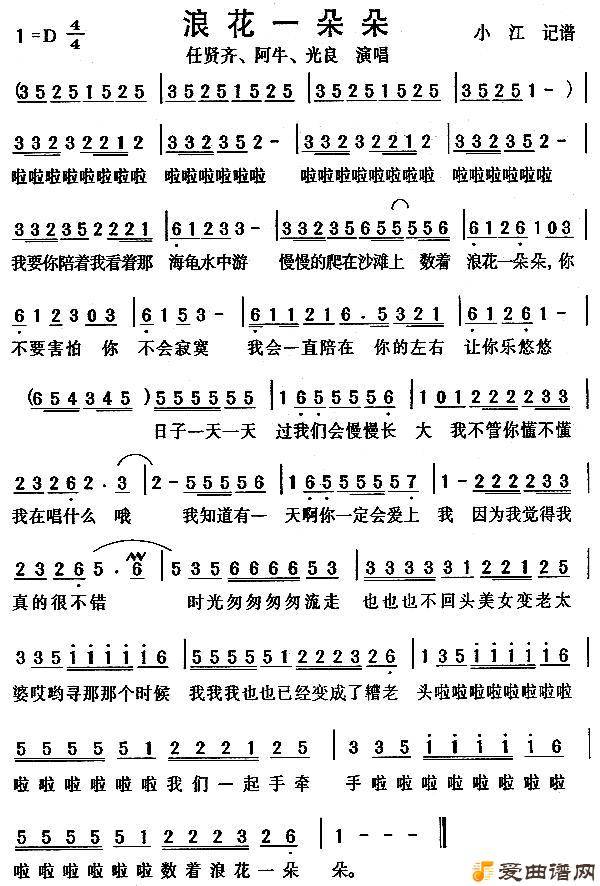 浪花一朵朵
1=D 4/4 小江 记谱
任贤齐、阿牛、光良 演唱
(35251525 | 35251525 | 35251525 | 35251- )
33232212 | 332352- | 33232212 | 332352-
啦啦啦啦啦啦啦啦 啦啦啦啦啦啦 啦啦啦啦啦啦啦啦 啦啦啦啦啦啦
3323522221 | 61233- | 332356555555 | 6126103
我要你陪着我看着那 海龟水中游 慢慢的爬在沙滩上 数着 浪花一朵朵,你
612303 | 6153- | 611216.5321 | 6126 1-
不要害怕 你 不会寂寞 我会一直陪在 你的左右 让你乐悠悠
(654345)555555 | 165555556 | 101222233
日子一天一天 过我们会慢慢长 大 我不管你懂不懂
23262.3 | 2-55555 | 1655555557 | 1-222233
我在唱什么 哦 我知道有一 天啊你一定会爱上 我 因为我觉得我
23265.6 | 5356666653 | 333222125
真的很不错 时光匆匆匆匆流走 也也也不回头美女变老太
3351111116 | 555551222326 | 13511111116
婆哎哟寻那那个时候 我我我也也已经变成了糟老 头啦啦啦啦啦啦啦啦
555555122212 | 33511111116
啦啦啦啦啦啦我们一起手牵 手啦啦啦啦啦啦啦啦
5555551222326 | 1---
啦啦啦啦啦啦数着浪花一朵 朵。
爱曲谱网